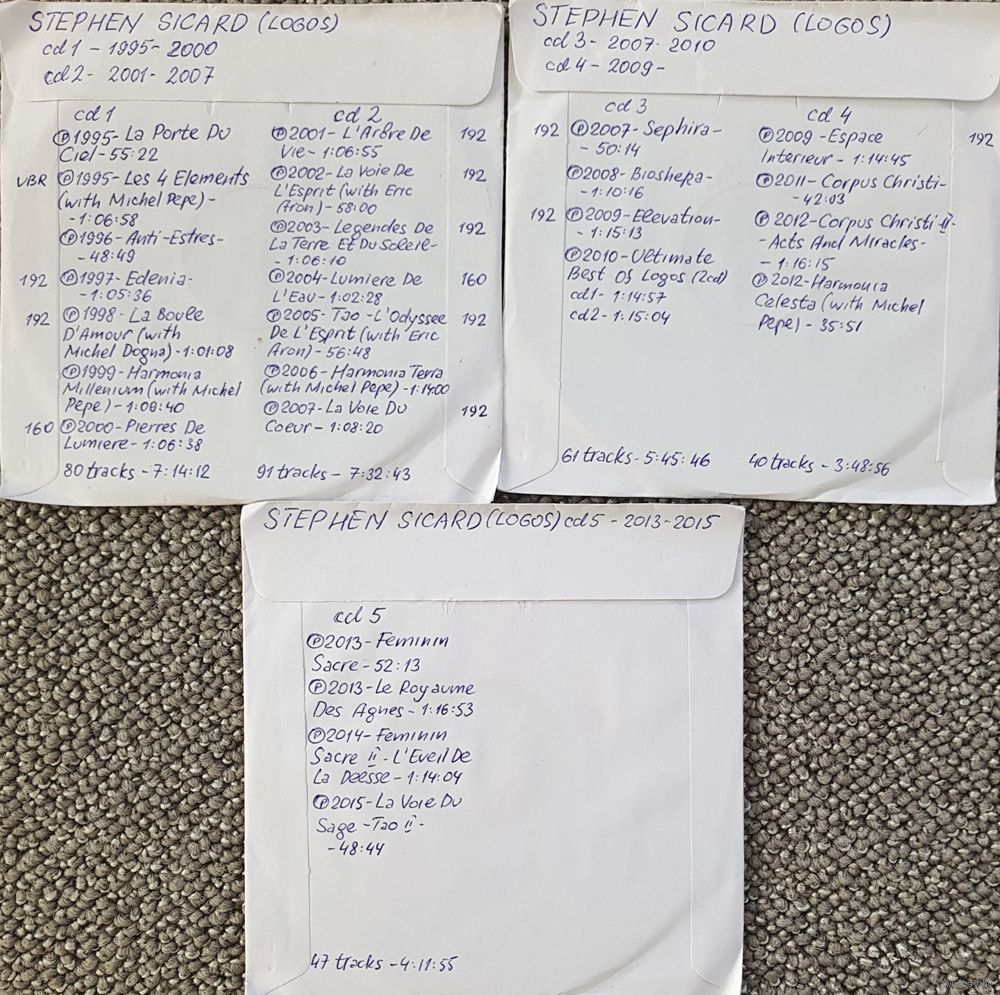 STEPHEN SICARD (LOGOS)
cd 1 - 1995- 2000
cd 2 - 2001- 2007
cd 1
Ⓟ1995- La Porte Du
Ciel - 55:22
VBR Ⓟ1995- Les 4 Elements
(with Michel Pepe) -
- 1:06:58
Ⓟ1996- Anti-Estres-
- 48:49
192 Ⓟ1997- Edenia-
- 1:05:36
192 Ⓟ1998- La Boule
D'Amour (with
Michel Dogna) - 1:01:08
Ⓟ1999- Harmonia
Millenium (with Michel
Pepe) - 1:08:40
160 Ⓟ2000- Pierres De
Lumiere - 1:06:38
80 tracks - 7:14:12
cd 2
Ⓟ2001- L'Arbre De 192
Vie - 1:06:55
Ⓟ2002- La Voie De 192
L'Esprit (with Eric
Aron) - 58:00
Ⓟ2003- Legendes De 192
La Terre Et Du Soleil-
- 1:06:10
Ⓟ2004- Lumiere De 160
L'Eau - 1:02:28
Ⓟ2005- Tao - L'Odyssee 192
De L'Esprit (with Eric
Aron) - 56:48
Ⓟ2006- Harmonia Terra
(with Michel Pepe) - 1:14:00
Ⓟ2007- La Voie Du 192
Coeur - 1:08:20
91 tracks - 7:32:43
STEPHEN SICARD (LOGOS)
cd 3 - 2007- 2010
cd 4 - 2009 -
cd 3
192 Ⓟ2007- Sephira-
- 50:14
Ⓟ2008- Bioshera-
- 1:10:16
192 Ⓟ2009- Elevation-
- 1:15:13
Ⓟ2010- Ultimate
Best Of Logos (2cd)
cd1- 1:14:57
cd2- 1:15:04
61 tracks - 5:45:46
cd 4
Ⓟ2009 - Espace 192
Interieur - 1:14:45
Ⓟ2011- Corpus Christi-
- 42:03
Ⓟ2012- Corpus Christi II-
- Acts And Miracles-
- 1:16:15
Ⓟ2012- Harmonia
Celesta (with Michel
Pepe) - 35:51
40 tracks - 3:48:56
STEPHEN SICARD (LOGOS) cd5 - 2013-2015
cd 5
Ⓟ2013- Feminin
Sacre - 52:13
Ⓟ2013- Le Royaume
Des Agnes - 1:16:53
Ⓟ2014- Feminin
Sacre II - L'Eveil De
La Deesse - 1:14:04
Ⓟ2015- La Voie Du
Sage - Tao II -
- 48:44
47 tracks - 4:11:55